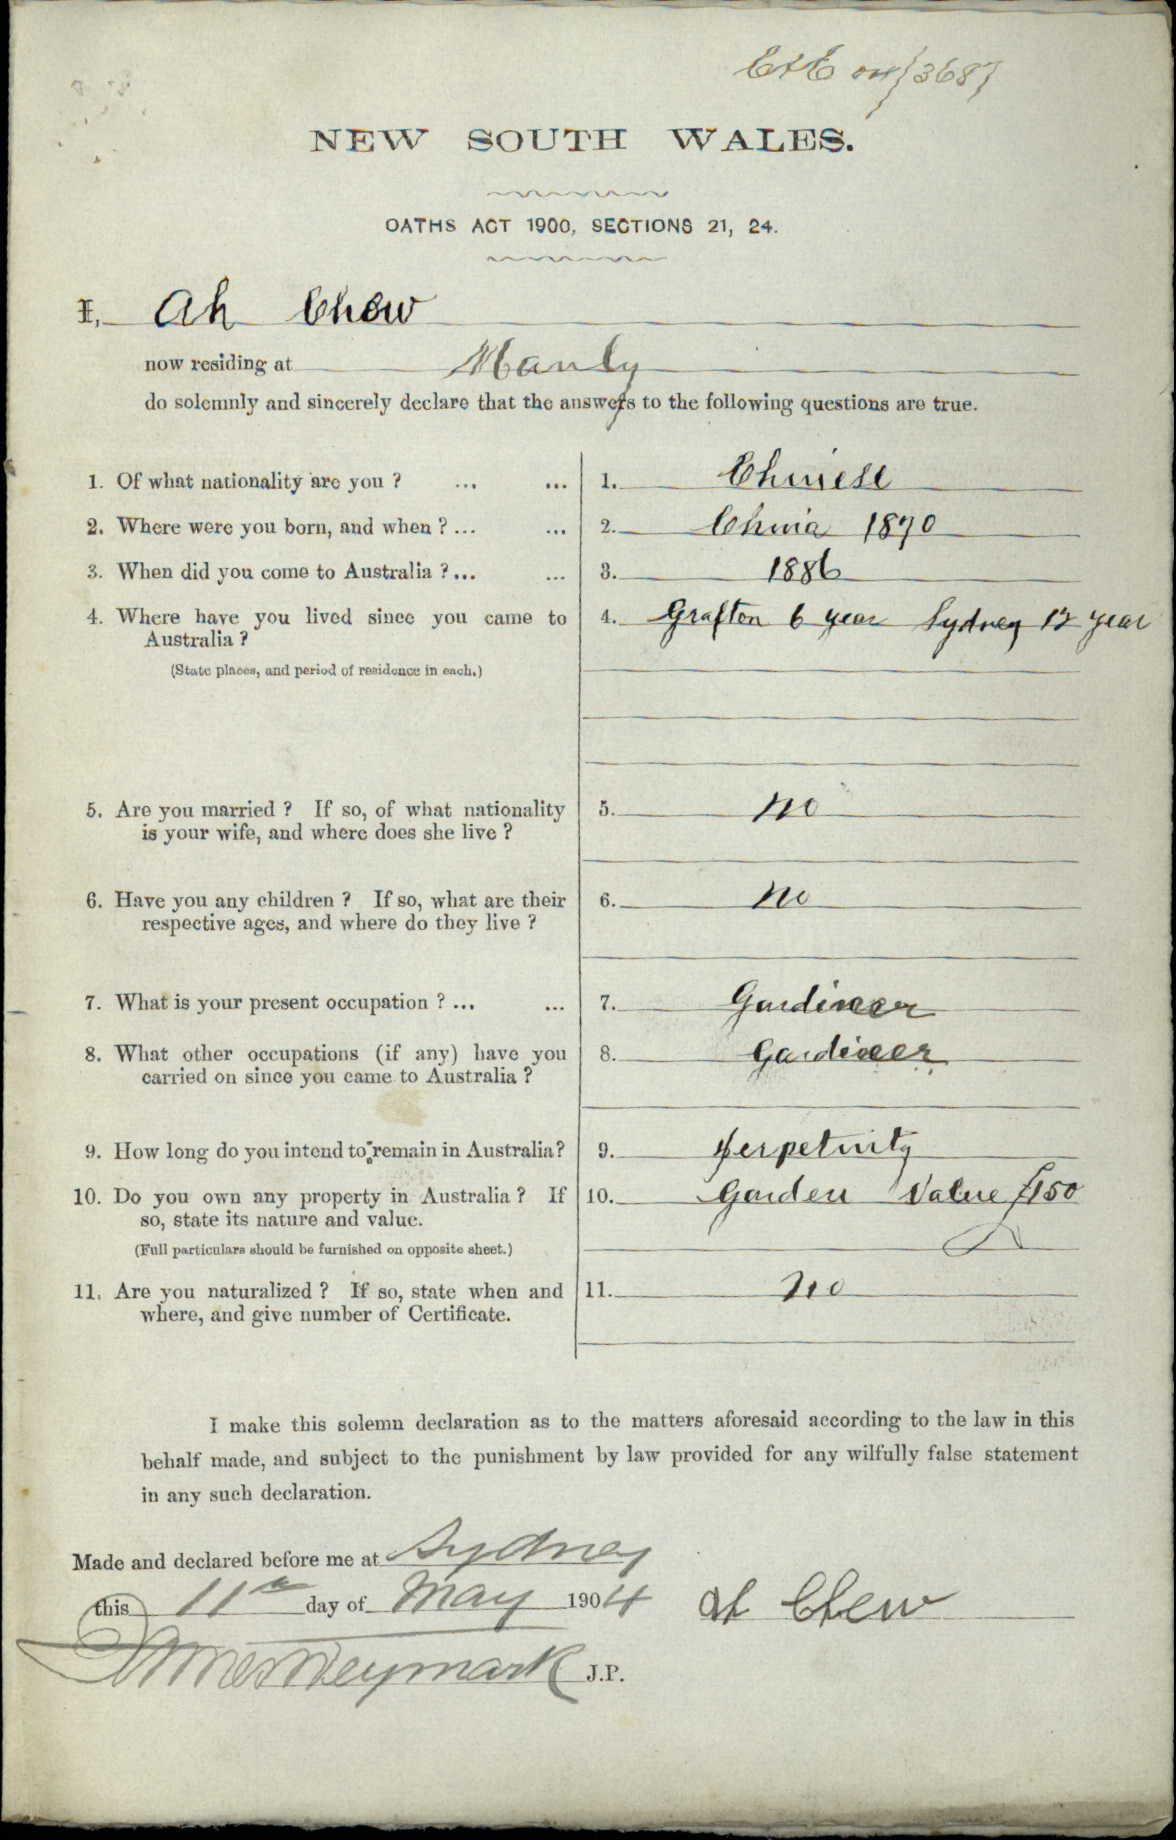 E & E 04/3687
NEW SOUTH WALES.
OATHS ACT 1900, SECTIONS 21, 24.
I, Ah Chew
now residing at Manly
do solemnly and sincerely declare that the answers to the following questions are true.
1. Of what nationality are you ? ... ... 1. Chinese
2. Where were you born, and when ? ... ... 2. China 1870
3. When did you come to Australia ? ... ... 3. 1886
4. Where have you lived since you came to 4. Grafton 6 year Sydney 12 year
Australia ?
(State places, and period of residence in each.)
5. Are you married ? If so, of what nationality 5. no
is your wife, and where does she live ?
6. Have you any children ? If so, what are their 6. no
respective ages, and where do they live ?
7. What is your present occupation ? ... ... 7. Gardineer
8. What other occupations (if any) have you 8. Gardineer
carried on since you came to Australia ?
9. How long do you intend to remain in Australia? 9. perpetuity
10. Do you own any property in Australia ? If 10. Garden Value £150
so, state its nature and value.
(Full particulars should be furnished on opposite sheet.)
11. Are you naturalized ? If so, state when and 11. no
where, and give number of Certificate.
I make this solemn declaration as to the matters aforesaid according to the law in this
behalf made, and subject to the punishment by law provided for any wilfully false statement
in any such declaration.
Made and declared before me at Sydney
this 11th day of May 1904 Ah Chew
J.P.